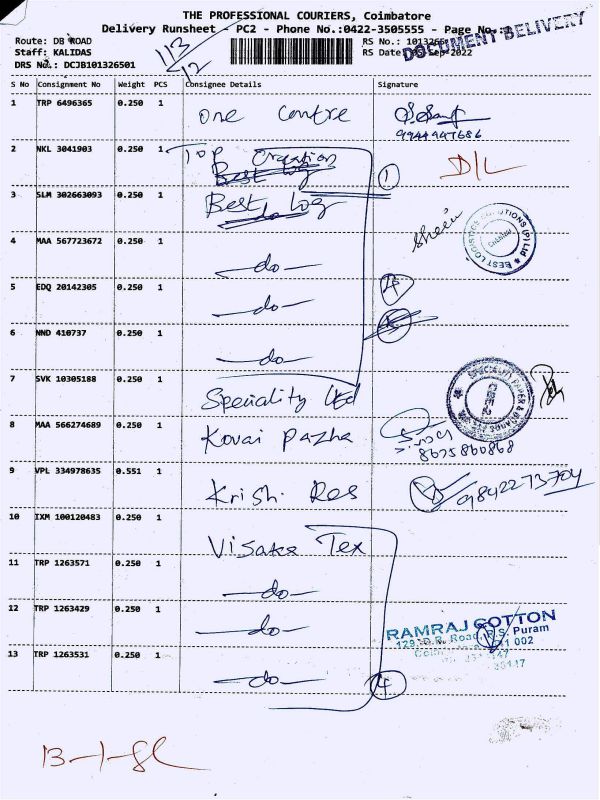 THE PROFESSIONAL COURIERS, Coimbatore
Delivery Runsheet - PC2 - Phone No.:0422-3505555 - Page No.:
DOCUMENT DELIVERY
Route: DB ROAD
Staff: KALIDAS
DRS No.: DCJB101326501
113
12
RS No.:
RS Date Sep-2022
S No Consignment No Weight PCS Consignee Details Signature
1 TRP 6496365 0.250 1 One Centre
9944947686
2 NKL 3041903 0.250 1 Top Creation
Best Log
1
D/L
3 SLM 302663093 0.250 1 Best Log
BEST LOGISTICS SOLUTIONS (P) Ltd
4 MAA 567723672 0.250 1 -do-
5 EDQ 20142305 0.250 1 -do-
4
6 NND 410737 0.250 1 -do-
7 SVK 10305188 0.250 1 Speciality Ltd
CBE-2
8 MAA 566274689 0.250 1 Kovai Pazha
8675860868
9 VPL 334978635 0.551 1 Krish. Res
9842273704
10 IXM 100120483 0.250 1 Visaka Tex
11 TRP 1263571 0.250 1 -do-
12 TRP 1263429 0.250 1 -do-
RAMRAJ COTTON
129, D.B. Road, R.S. Puram
13 TRP 1263531 0.250 1 -do-
4